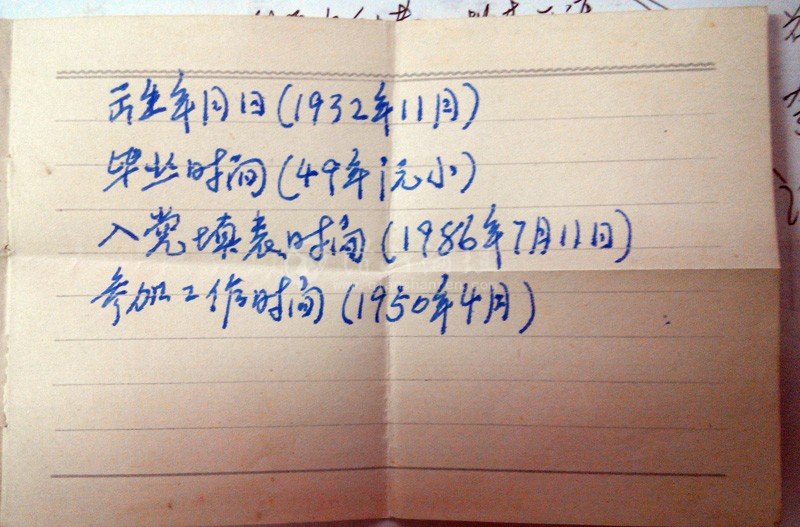 出生年月日(1932年11月)
毕业时间(49年沅小)
入党填表时间(1986年7月11日)
参加工作时间(1950年4月)